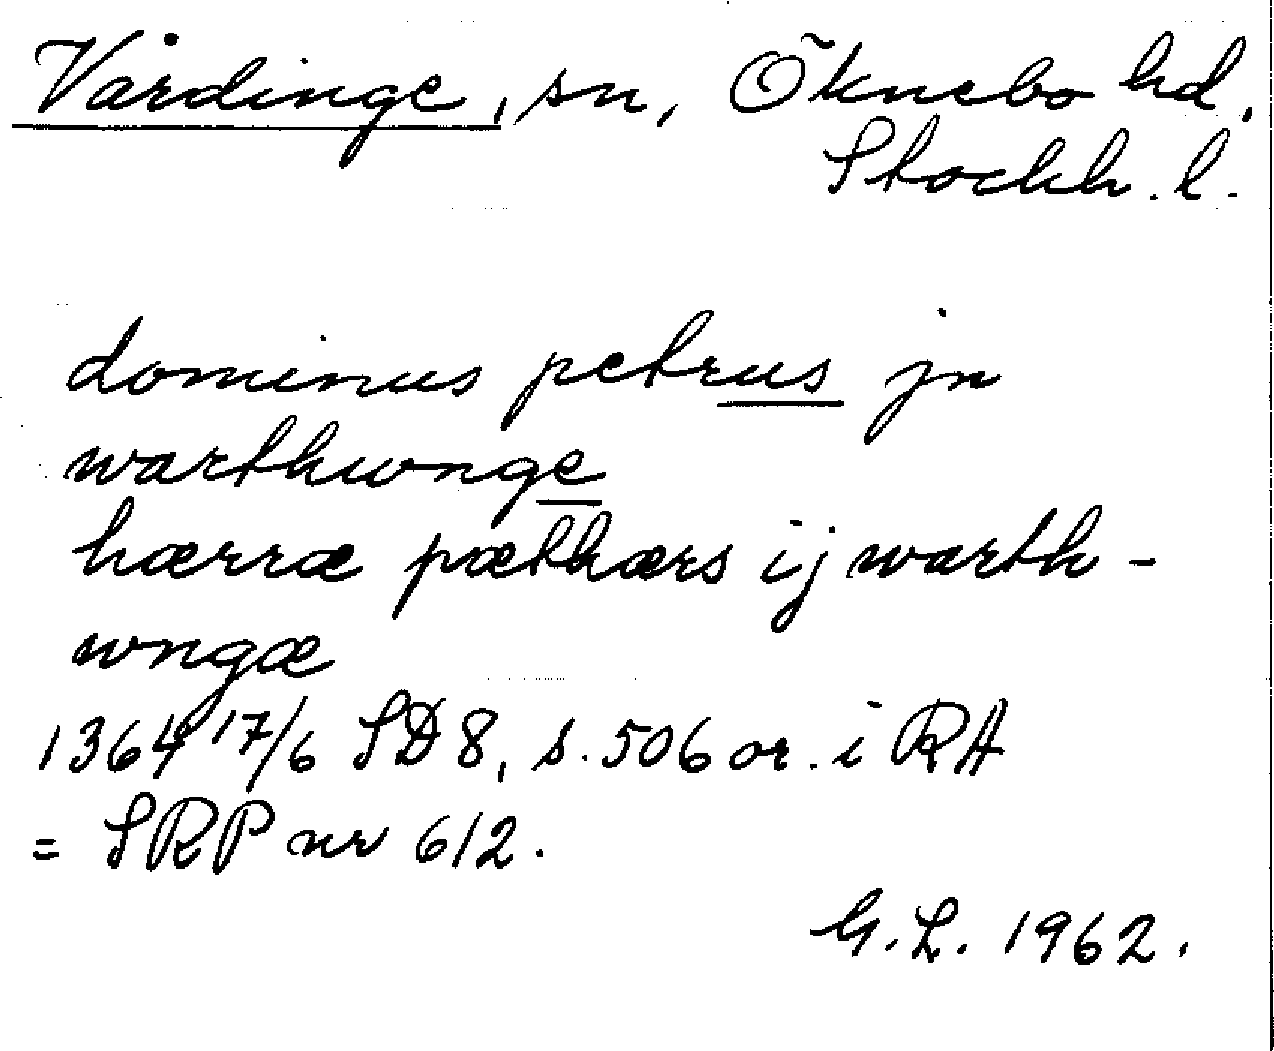 Vårdinge, sn, Öknebo hd,
Stockh. l.
dominus petrus jn
warthwnge
hærræ pæthærs ij warth-
wngæ
1364 17/6 SD 8, s. 506 or. i RA
= SRP nr 612.
G.L. 1962.